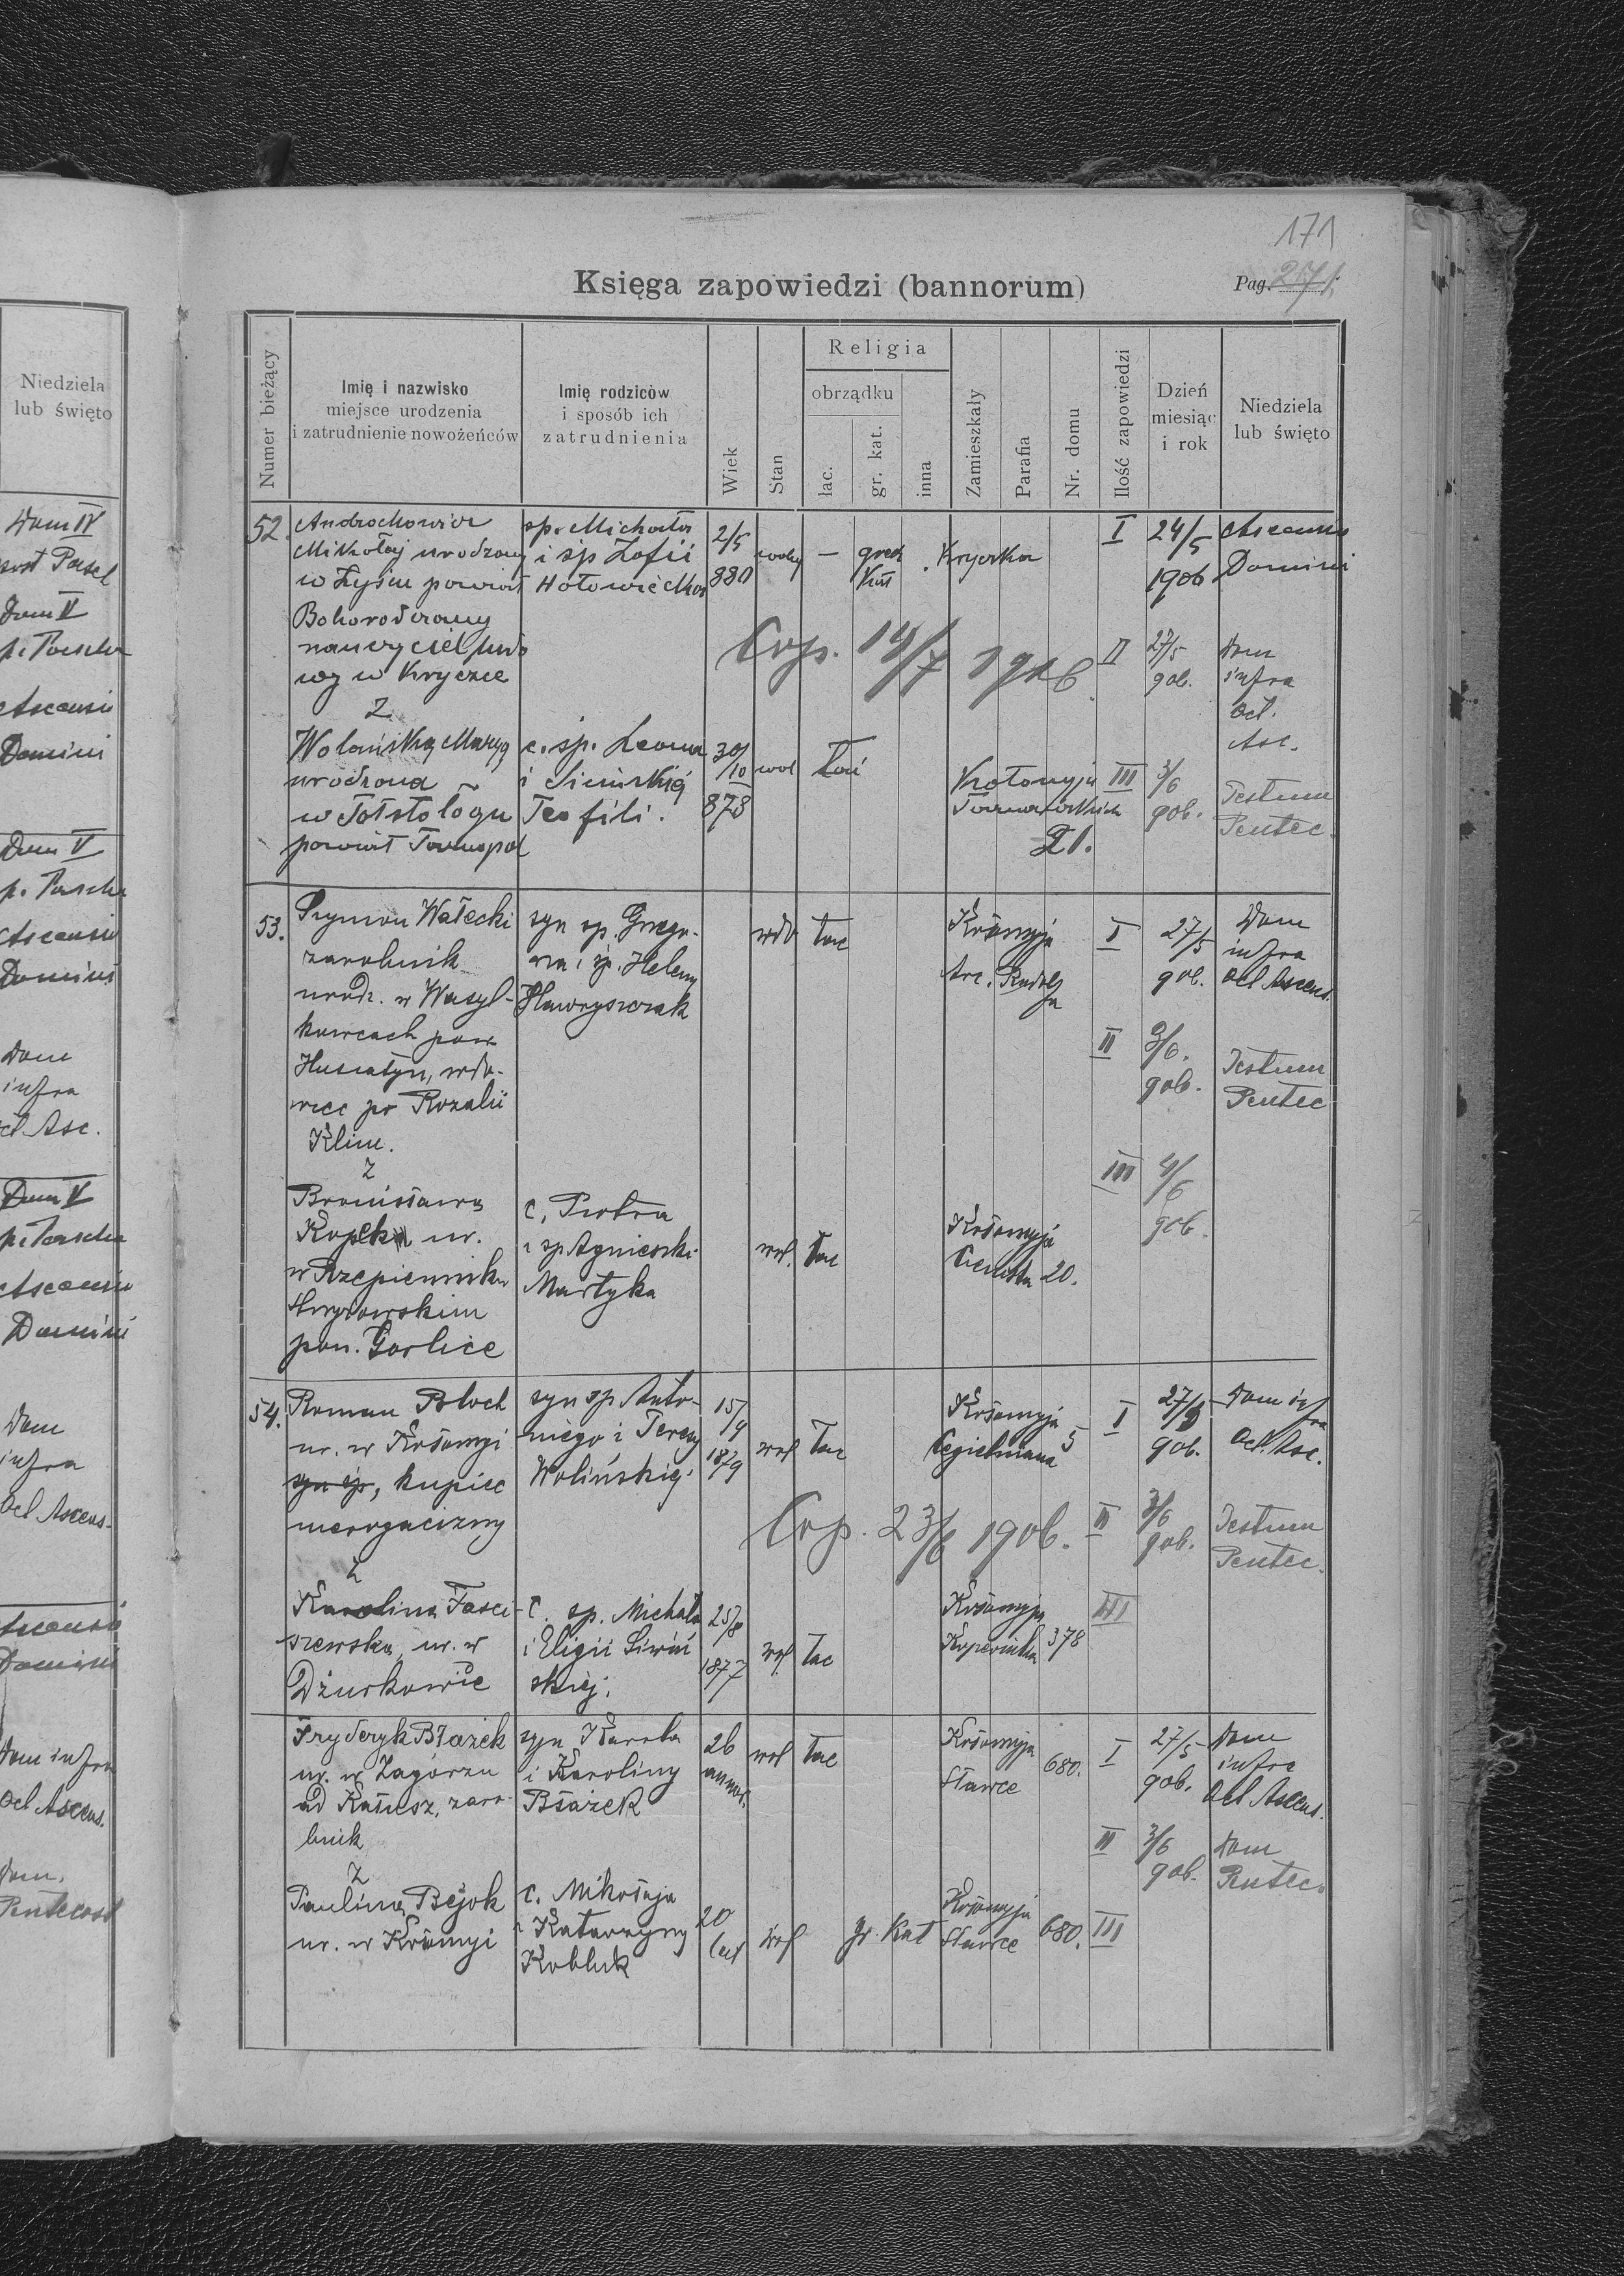 171
Księga zapowiedzi (bannorum)
Pag. 271
Numer bieżący
Imię i nazwisko
miejsce urodzenia
i zatrudnienie nowożeńców
Imię rodziców
i sposób ich
zatrudnienia
Wiek
Stan
Religia
obrządku
łac.
gr. kat.
inna
Zamieszkały
Parafia
Nr. domu
Ilość zapowiedzi
Dzień
miesiąc
i rok
Niedziela
lub święto
52.
Mikołaj urodzony
powiat
w Kryczce
Z
Wolańską Maryą
urodzona
w Tołstoługu
powiat Tarnopol
sp. Michała
i sp Zofii
c. sp. Leona
i
Teofili.
2/5
880
wolny
—
Kryczka
30/10
878
wol
Kołomyja
21.
Crp. 14/7 1906
I
24/5
1906
Ascensio
Domini
II
27/5
906.
Dom
infra
Oct.
Asc.
III
3/6
906.
Festum
Pentec.
53.
Szymon Wałecki
zarobnik
urodz. w Wasyl-
kowcach pow
Husiatyn, wdo-
wiec po Rozalii
Klim.
Z
Bronisława
Kopek ur.
w Rzepienniku
pow. Gorlice
syn sp. Grzego-
rza i sp. Heleny
c. Piotra
i sp Agnieszki
Martyka
wdo
łac
Kołomyja
Arc. Rudolfa
wol.
łac
Kołomyja
20.
I
27/5
906.
Dom
infra
Oct Ascens.
II
3/6.
906.
Festum
Pentec
III
4/6
906.
54.
Roman Bloch
ur. w Kołomyi
syn sp, kupiec
nierogacizny
Z
Karolina Fasci-
szewska, ur. w
Dżurkowie
syn sp Anto-
niego i Teresy
Wolińskiej.
c. sp. Michała
i Eligii Siwiń
skiej.
15/9
1879
wol
łac
Kołomyja
Cegielniana 5
25/8
1877
wol.
łac
Kołomyja
Kopernika 378
Crp. 23/6 1906.
I
27/5
906.
Dom infra
Oct. Asc.
II
3/6
906.
Festum
Pentec.
III
Fryderyk Błażek
ur. w Zagórzu
ad Kałusz, zaro-
bnik
Z
Paulina Bejok
ur. w Kołomyi
syn Karola
i Karoliny
Błażek
c. Mikołaja
i Katarzyny
Kobluk
26
annor.
wol
łac
Kołomyja
Stawce
680.
20
lat
wol
gr. Kat
Kołomyja
Stawce
680.
I
27/5
906.
Dom
infra
Oct Ascens.
II
3/6
906.
Dom
Pentec.
III
Niedziela
lub święto
Dom IV
post Pasch
Dom V
p. Pascha
Ascensio
Domini
Dom V
p. Pascha
Ascensio
Domini
Dom
infra
Oct Asc.
Dom V
p. Pascha
Ascensio
Domini
Dom
infra
Oct Ascens.
Ascensio
Domini
Dom infra
Oct Ascens.
Dom.
Pentecost